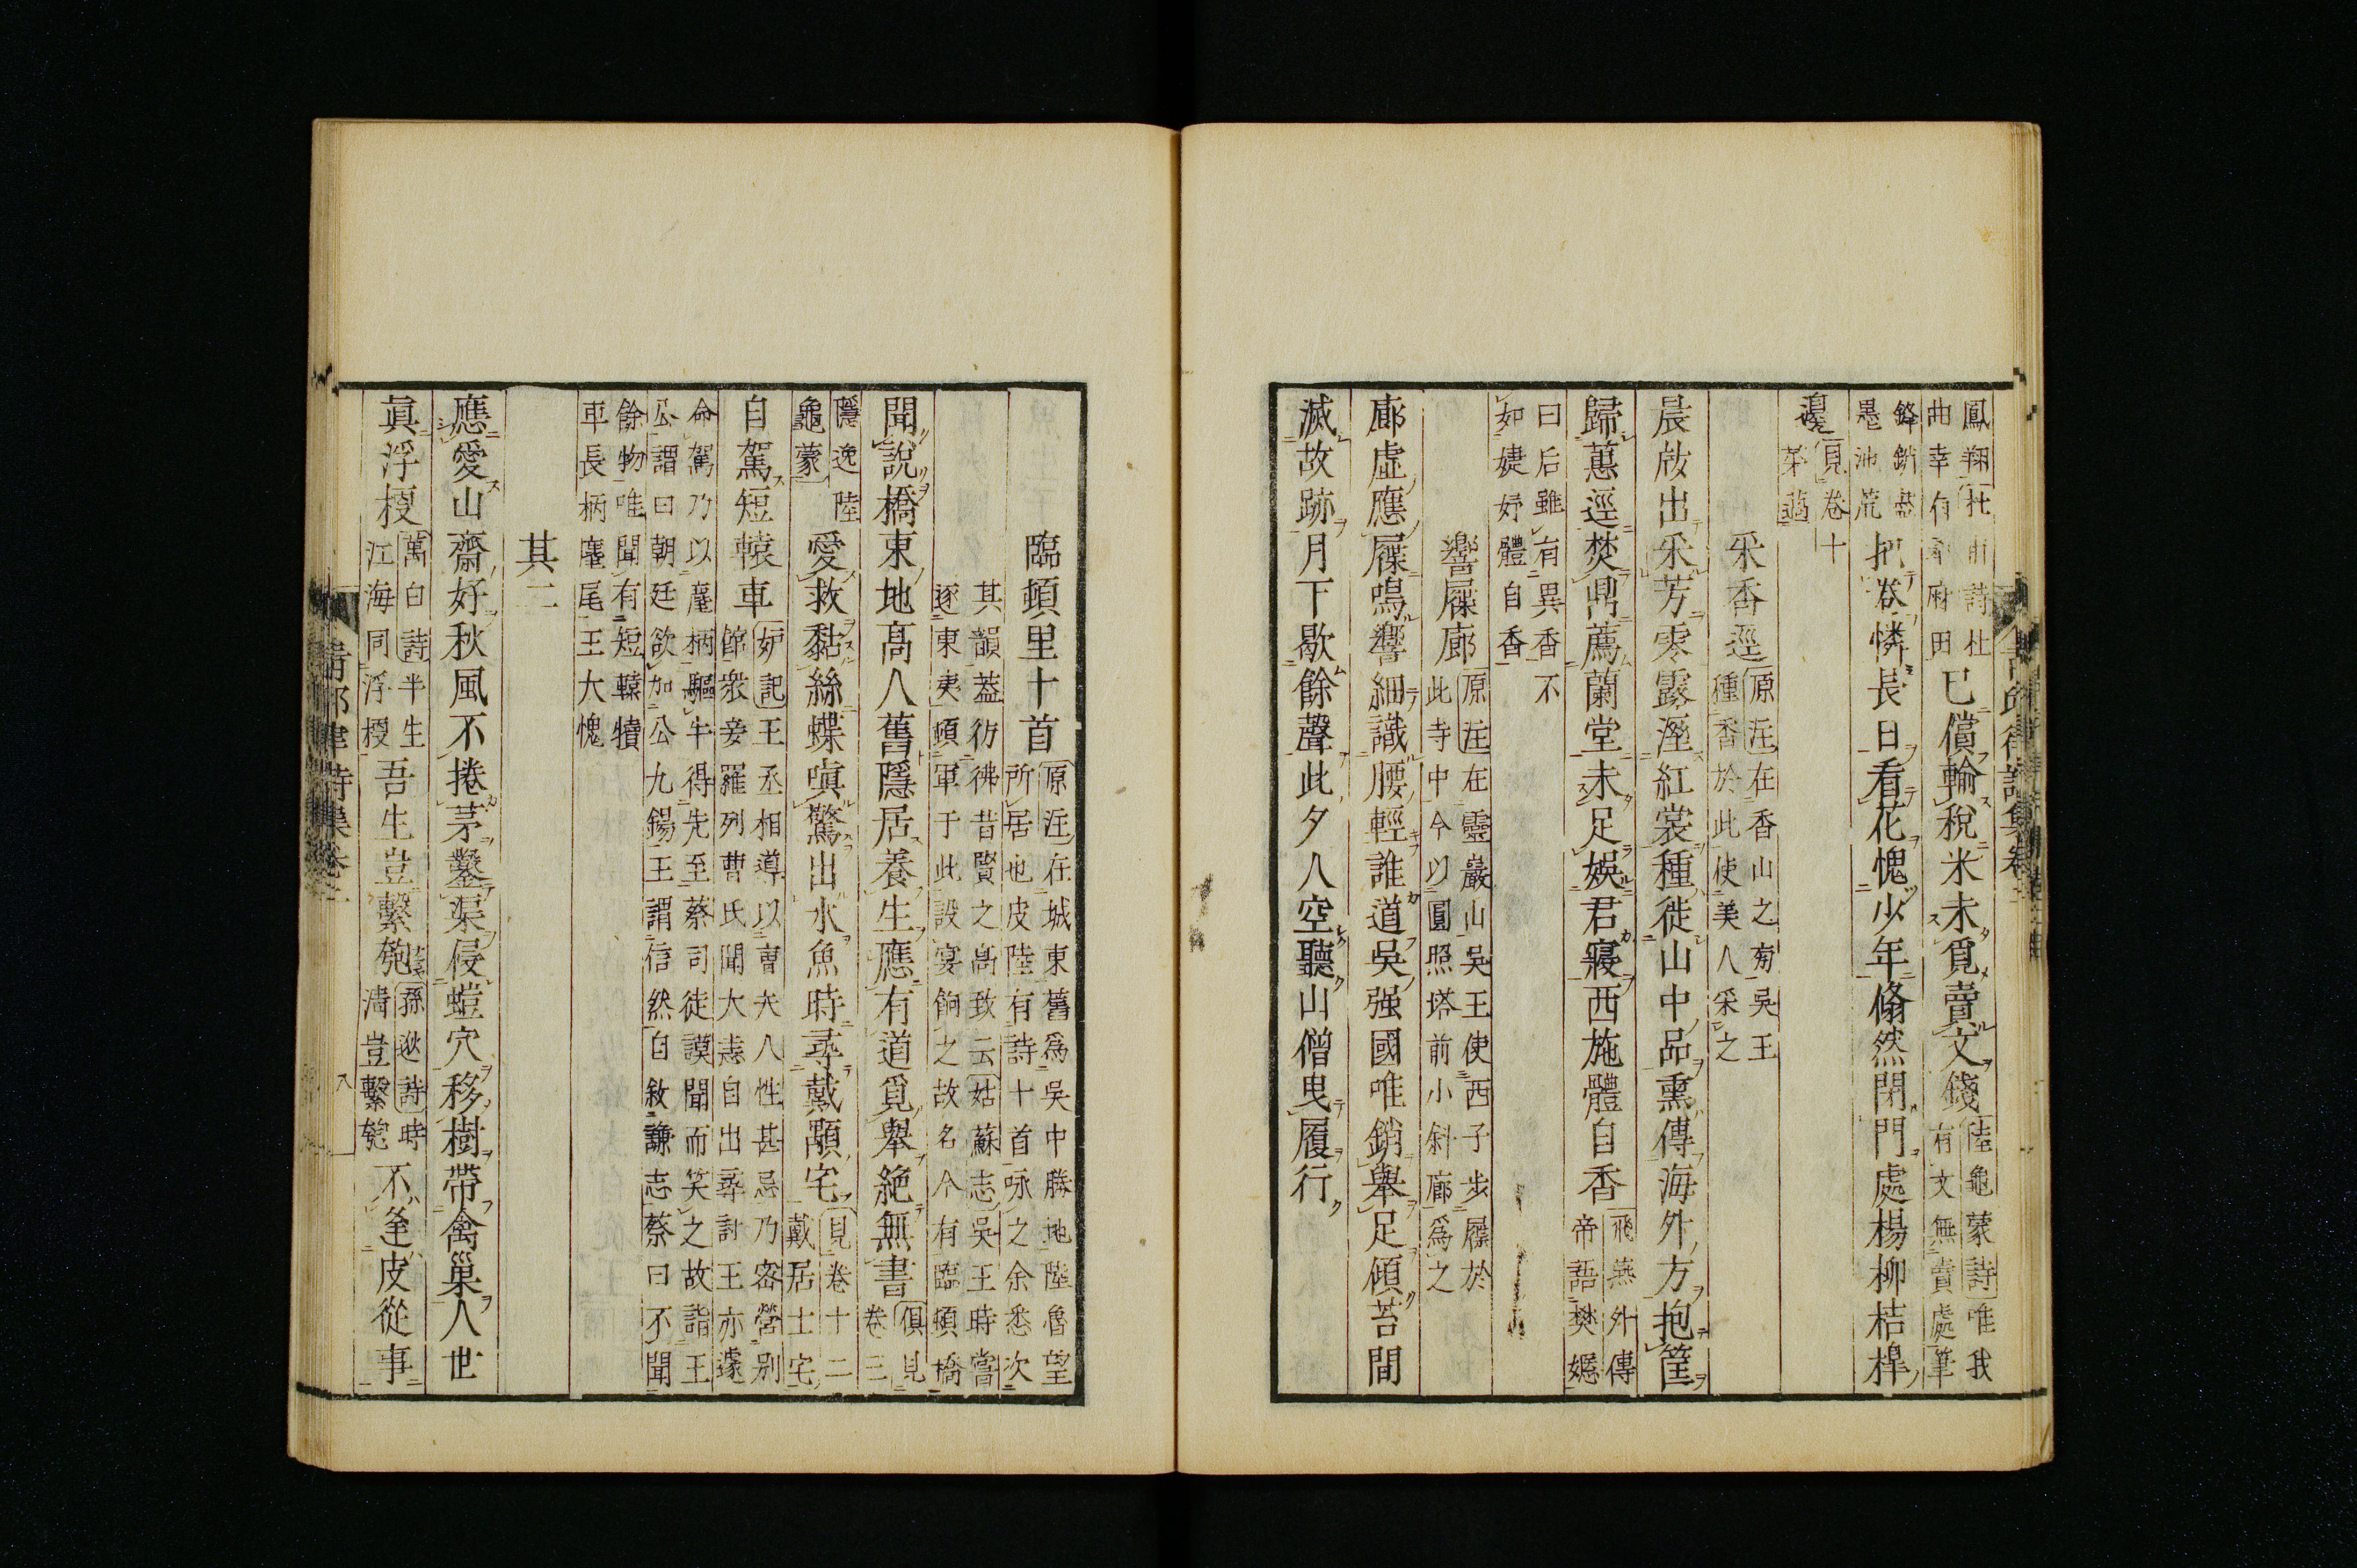 鳳翔杜甫詩杜
曲幸有
田
已償輸稅米未覓賣文錢
陸龜蒙詩唯我
有文無賣處筆
鋒銷盡
墨池荒
把卷憐長日看花愧少年翛然閉門處楊柳桔槹
邊
見卷十
采香逕
原注在香山之旁吳王
種香於此使美人采之
晨啟出采芳零露溼紅裳種徙山中品熏傳海外方抱筐
歸蕙逕焚鼎薦蘭堂未足娛君寢西施體自香
飛燕外傳
帝語樊嫕
曰后雖有異香不
如婕妤體自香
響屧廊
原注在靈巖山吳王使西子步屧於
此寺中今以圓照塔前小斜廊爲之
廊虛應屧鳴響細識腰輕誰道吳强國唯銷舉足傾苔間
滅故跡月下歇餘聲此夕人空聽山僧曳履行
臨頓里十首
原注在城東舊爲吳中勝地陸魯望
所居也皮陸有詩十首咏之余悉次
其韻葢彷彿昔賢之高致云姑蘇志吳王時嘗
逐東夷頓軍于此設宴餉之故名今有臨頓橋
聞說橋東地高人舊隱居養生應有道覓舉絶無書
俱見
卷三
隱逸陸
龜蒙
愛救黏絲蝶嗔驚出水魚時尋戴顒宅
見卷十二
戴居士宅
自駕短轅車
妒記王丞相導以曹夫人性甚忌乃密營别
館衆妾羅列曹氏聞大恚自出尋討王亦遽
命駕乃以麈柄驅牛得先至蔡司徒謨聞而笑之故詣王
公謂曰朝廷欲加公九錫王謂信然自敘謙志蔡曰不聞
餘物唯聞有短轅犢
車長柄麈尾王大愧
其二
應愛山齋好秋風不捲茅鑿渠侵螘穴移樹帶禽巢人世
眞浮梗
萬白詩半生
江海同浮梗
吾生豈繫匏
孫逖詩時
清豈繫匏
不逢皮從事
青邱律詩集卷二
八